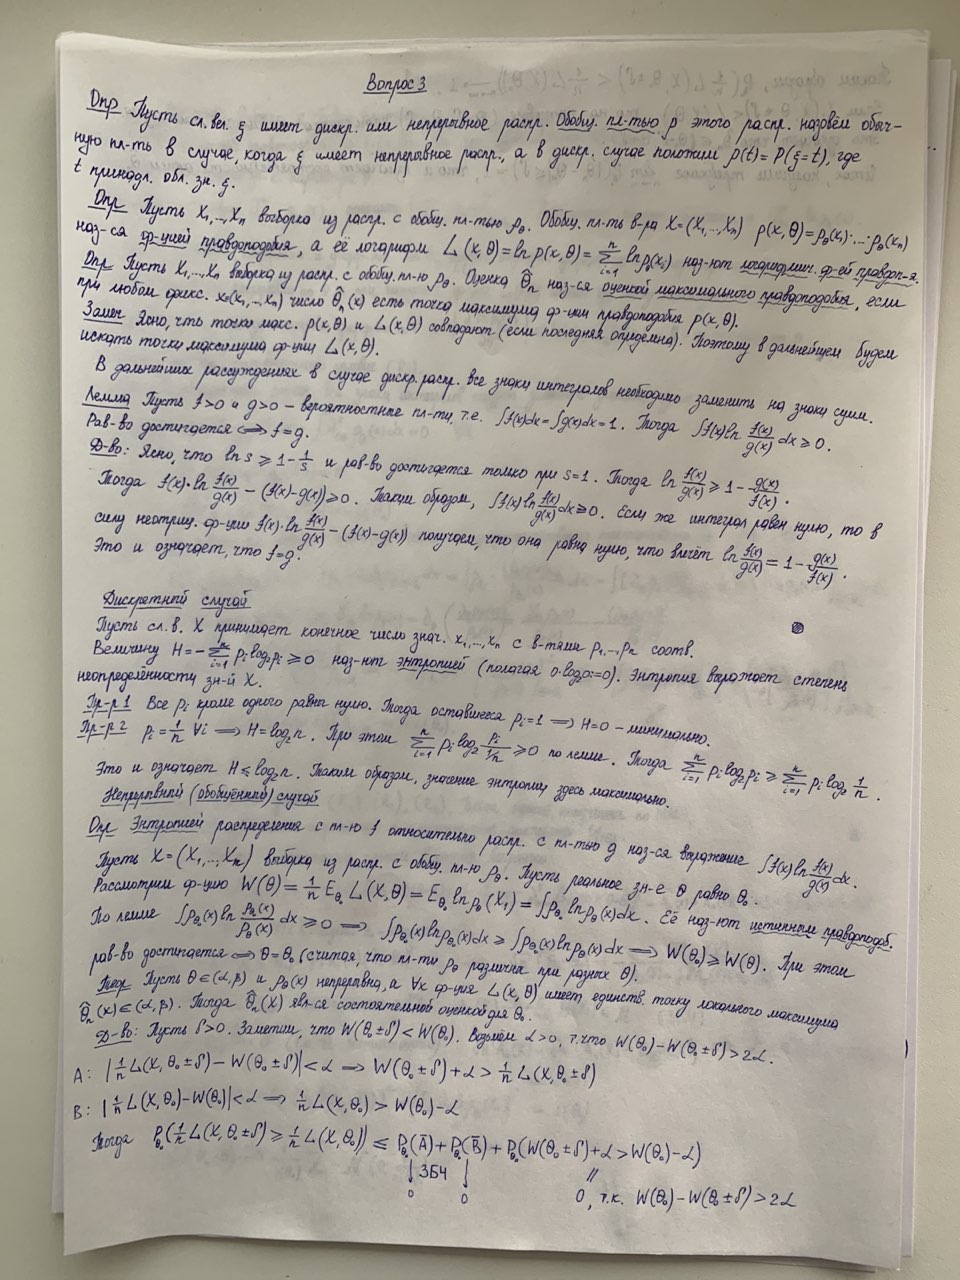 Вопрос 3
Опр Пусть сл. вел. ξ имеет дискр. или непрерывное распр. Обобщ. пл-тью ρ этого распр. назовём обыч-
ную пл-ть в случае, когда ξ имеет непрерывное распр., а в дискр. случае положим ρ(t) = P(ξ=t), где
t принадл. обл. зн. ξ.
Опр Пусть X₁,...,Xₙ выборка из распр. с обобщ. пл-тью ρ_θ. Обобщ. пл-ть в-ра X=(X₁,...,Xₙ) ρ(x,θ)=ρ_θ(x₁)·...·ρ_θ(xₙ)
наз-ся ф-цией правдоподобия, а её логарифм L(x,θ)=ln ρ(x,θ)=∑ᵢ₌₁ⁿ ln ρ_θ(xᵢ) наз-ют логарифмич. ф-ей правдоп-я.
Опр Пусть X₁,...,Xₙ выборка из распр. с обобщ. пл-ю ρ_θ. Оценка θ̂ₙ наз-ся оценкой максимального правдоподобия, если
при любом фикс. x=(x₁,...,xₙ) число θ̂ₙ(x) есть точка максимума ф-ции правдоподобия ρ(x,θ).
Замеч Ясно, что точки макс. ρ(x,θ) и L(x,θ) совпадают (если последняя определена). Поэтому в дальнейшем будем
искать точки максимума ф-ции L(x,θ).
В дальнейших рассуждениях в случае дискр. распр. все знаки интегралов необходимо заменить на знаки сумм.
Лемма Пусть f>0 и g>0 – вероятностные пл-ти, т.е. ∫f(x)dx=∫g(x)dx=1. Тогда ∫f(x)ln f(x)/g(x) dx ≥ 0.
Рав-во достигается ⟺ f=g.
Д-во: Ясно, что ln s ≥ 1 - 1/s и рав-во достигается только при s=1. Тогда ln f(x)/g(x) ≥ 1 - g(x)/f(x).
Тогда f(x)·ln f(x)/g(x) - (f(x)-g(x)) ≥ 0. Таким образом, ∫f(x)ln f(x)/g(x) dx ≥ 0. Если же интеграл равен нулю, то в
силу неотриц. ф-ции f(x)·ln f(x)/g(x) - (f(x)-g(x)) получаем, что она равна нулю, что влечёт ln f(x)/g(x) = 1 - g(x)/f(x).
Это и означает, что f=g.
Дискретный случай
Пусть сл. в. X принимает конечное число знач. x₁,...,xₙ с в-тями p₁,...,pₙ соотв.
Величину H=-∑ᵢ₌₁ⁿ pᵢ log₂ pᵢ ≥ 0 наз-ют энтропией (полагая 0·log₂0:=0). Энтропия выражает степень
неопределённости зн-й X.
Пр-р 1 Все pᵢ кроме одного равны нулю. Тогда оставшееся pᵢ=1 ⟹ H=0 – минимально.
Пр-р 2 pᵢ=1/n ∀i ⟹ H=log₂n. При этом ∑ᵢ₌₁ⁿ pᵢ log₂ pᵢ/(1/n) ≥ 0 по лемме. Тогда ∑ᵢ₌₁ⁿ pᵢ log₂ pᵢ ≥ ∑ᵢ₌₁ⁿ pᵢ log₂ 1/n.
Это и означает H ≤ log₂n. Таким образом, значение энтропии здесь максимально.
Непрерывный (обобщённый) случай
Опр Энтропией распределения с пл-ю f относительно распр. с пл-тью g наз-ся выражение ∫f(x)ln f(x)/g(x) dx.
Пусть X=(X₁,...,Xₙ) выборка из распр. с обобщ. пл-ю ρ_θ. Пусть реальное зн-е θ равно θ₀.
Рассмотрим ф-цию W(θ) = 1/n E_θ₀ L(X,θ) = E_θ₀ ln ρ_θ(X₁) = ∫ρ_θ₀ ln ρ_θ(x)dx. Её наз-ют истинным правдоподоб.
По лемме ∫ρ_θ₀(x)ln ρ_θ₀(x)/ρ_θ(x) dx ≥ 0 ⟹ ∫ρ_θ₀(x)ln ρ_θ₀(x)dx ≥ ∫ρ_θ₀(x)ln ρ_θ(x)dx ⟹ W(θ₀) ≥ W(θ). При этом
рав-во достигается ⟺ θ=θ₀ (считая, что пл-ти ρ_θ различны при разных θ).
Теор Пусть θ∈(α,β) и ρ_θ(x) непрерывна, а ∀x ф-ция L(x,θ) имеет единств. точку локального максимума
θ̂ₙ(x)∈(α,β). Тогда θ̂ₙ(X) явл-ся состоятельной оценкой для θ₀.
Д-во: Пусть δ>0. Заметим, что W(θ₀±δ) < W(θ₀). Возьмём α>0, т.что W(θ₀)-W(θ₀±δ)>2α.
A: |1/n L(X,θ₀±δ) - W(θ₀±δ)| < α ⟹ W(θ₀±δ)+α > 1/n L(X,θ₀±δ)
B: |1/n L(X,θ₀) - W(θ₀)| < α ⟹ 1/n L(X,θ₀) > W(θ₀)-α
Тогда P_θ₀(1/n L(X,θ₀±δ) ≥ 1/n L(X,θ₀)) ≤ P_θ₀(Ā) + P_θ₀(B̄) + P_θ₀(W(θ₀±δ)+α > W(θ₀)-α)
↓ ЗБЧ ↓ ‖
0 0 0, т.к. W(θ₀)-W(θ₀±δ)>2α